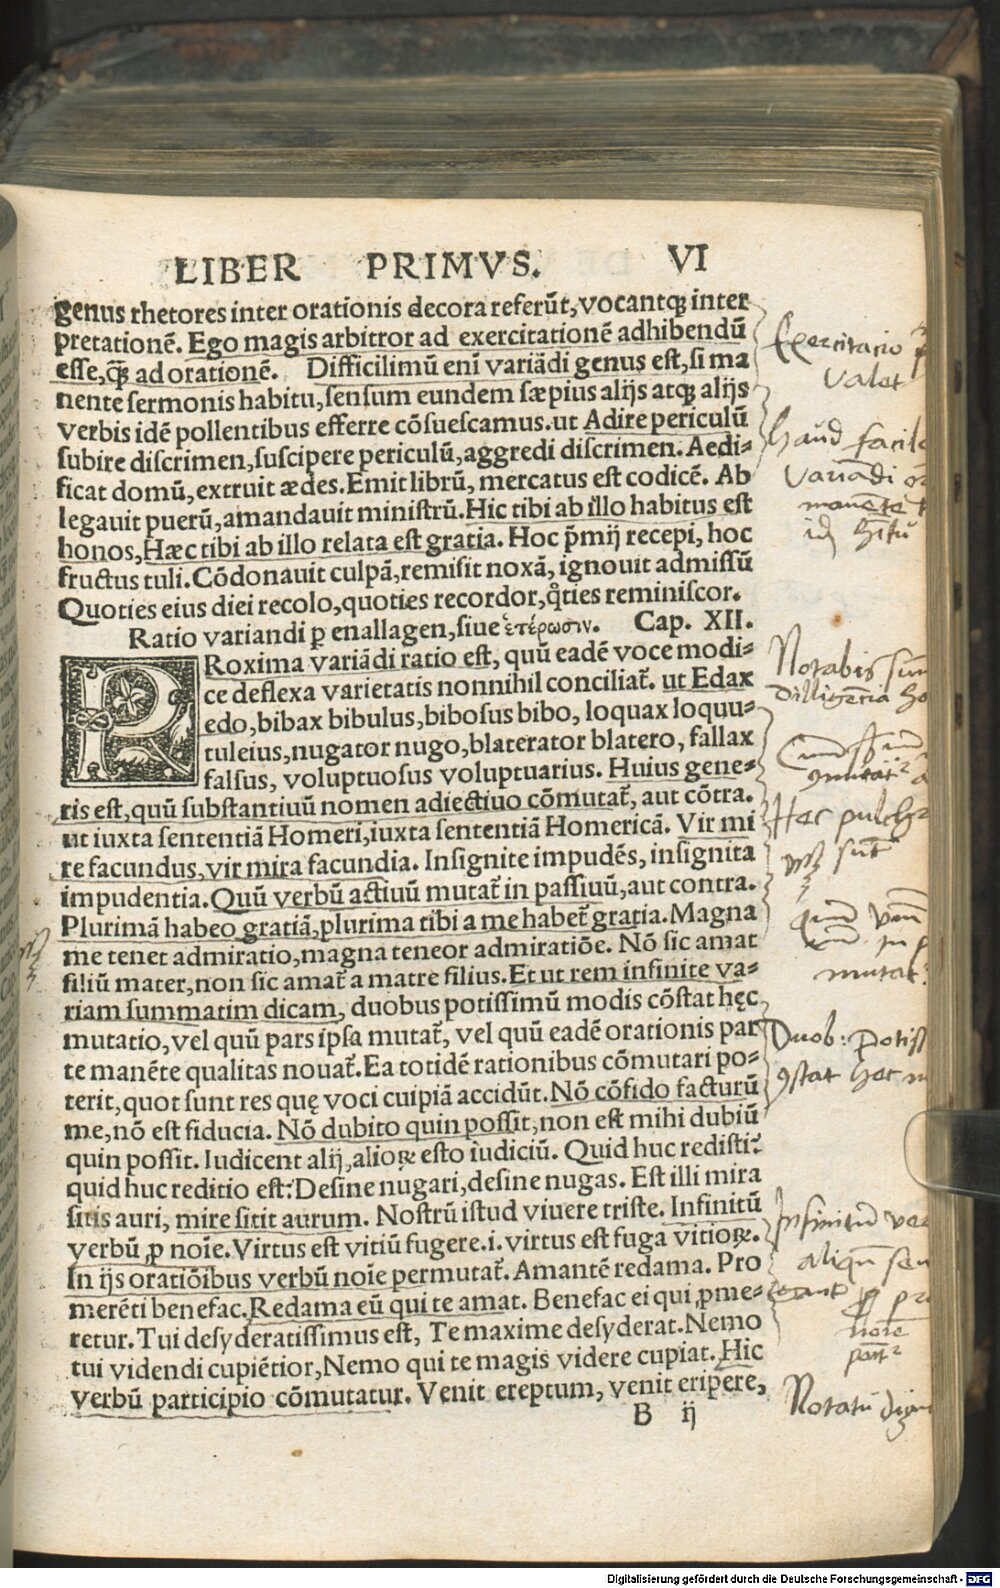 LIBER PRIMVS. VI
genus rhetores inter orationis decora referūt, vocantq; inter
pretationē. Ego magis arbitror ad exercitationē adhibendū
esse, q̄ꝫ ad orationē. Difficilimū eni variādi genus est, si ma
nente sermonis habitu, sensum eundem sæpius alijs atq; alijs
verbis idē pollentibus efferre cōsuescamus. ut Adire periculū
subire discrimen, suscipere periculū, aggredi discrimen. Aedi-
ficat domū, extruit ædes. Emit librū, mercatus est codicē. Ab
legauit puerū, amandauit ministrū. Hic tibi ab illo habitus est
honos, Hæc tibi ab illo relata est gratia. Hoc p̄mij recepi, hoc
fructus tuli. Cōdonauit culpā, remisit noxā, ignouit admissū
Quoties eius diei recolo, quoties recordor, q̊ties reminiscor.
Ratio variandi ꝑ enallagen, siue ἑτέρωσιν. Cap. XII.
PRoxima variādi ratio est, quū eadē voce modi-
ce deflexa varietatis nonnihil conciliat᷑. ut Edax
edo, bibax bibulus, bibosus bibo, loquax loquu-
tuleius, nugator nugo, blaterator blatero, fallax
falsus, voluptuosus voluptuarius. Huius gene-
ris est, quū substantiuū nomen adiectiuo cōmutat᷑, aut cōtra.
ut iuxta sententiā Homeri, iuxta sententiā Homericā. Vir mi
re facundus, vir mira facundia. Insignite impudēs, insignita
impudentia. Quū verbū actiuū mutat᷑ in passiuū, aut contra.
Plurimā habeo gratiā, plurima tibi a me habet᷑ gratia. Magna
me tenet admiratio, magna teneor admiratiōe. Nō sic amat
filiū mater, non sic amat᷑ a matre filius. Et ut rem infinite va-
riam summatim dicam, duobus potissimū modis cōstat hęc
mutatio, vel quū pars ipsa mutat᷑, vel quū eadē orationis par
te manēte qualitas nouat᷑. Ea totidē rationibus cōmutari po-
terit, quot sunt res quę voci cuipiā accidūt. Nō cōfido facturū
me, nō est fiducia. Nō dubito quin possit, non est mihi dubiū
quin possit. Iudicent alij, alioꝝ esto iudiciū. Quid huc redisti?
quid huc reditio est? Desine nugari, desine nugas. Est illi mira
sitis auri, mire sitit aurum. Nostrū istud viuere triste. Infinitū
verbū ꝓ noīe. Virtus est vitiū fugere .i. virtus est fuga vitioꝝ.
In ijs oratiōibus verbū noīe permutat᷑. Amantē redama. Pro
merēti benefac. Redama eū qui te amat. Benefac ei qui ꝓme-
retur. Tui desyderatissimus est, Te maxime desyderat. Nemo
tui videndi cupiētior, Nemo qui te magis videre cupiat. Hic
verbū participio cōmutatur. Venit ereptum, venit eripere,
B ij
Exercitacio
valet
haud facile
variādi
Notabis
diligēcia
Hec pulchr
sūt
mutat
Duob: potiss
Infinitū
aliqn̄
noīe
Notatū
Digitalisierung gefördert durch die Deutsche Forschungsgemeinschaft - DFG